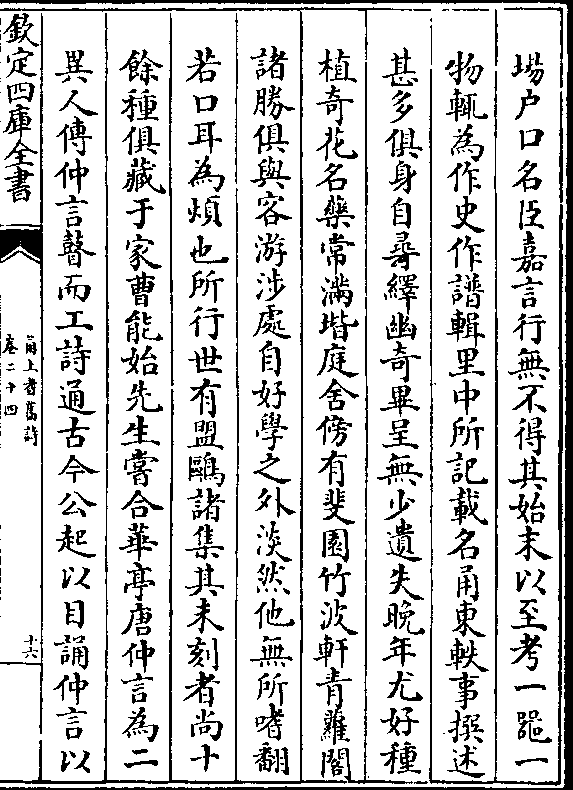 場户口名臣嘉言行無不得其始末以至考一噐一
物輒為作史作譜輯里中所記載名甬東軼事撰述
甚多俱身自尋繹幽奇畢呈無少遺失晚年尤好種
植奇花名藥常滿堦庭舍傍有斐園竹波軒青蘿閣
諸勝俱與客游涉處自好學之外淡然他無所嗜翻
若口耳為煩也所行世有盟鷗諸集其未刻者尚十
餘種俱藏于家曹能始先生嘗合華亭唐仲言為二
異人傳仲言瞽而工詩通古今公起以目誦仲言以
欽定四庫全書
甬上耆舊詩
卷二十四
十六